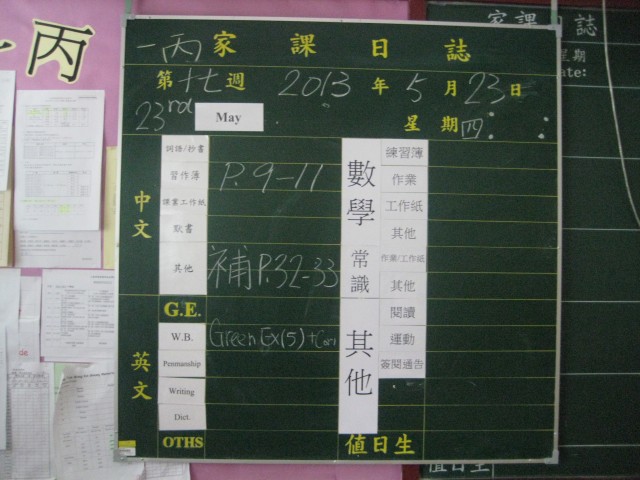 丙
一丙 家課日誌
第十七週 2013年5月23日
23rd May 星期四
中文
詞語/抄書
習作簿 P.9-11
課業工作紙
默書
其他 補P.32-33
英文
G.E.
W.B. Green Ex(5) + Corr
Penmanship
Writing
Dict.
OTHS
數學
練習簿
作業
工作紙
其他
常識
作業/工作紙
其他
其他
閱讀
運動
簽閱通告
值日生
家課日誌
星期
ate:
值日生